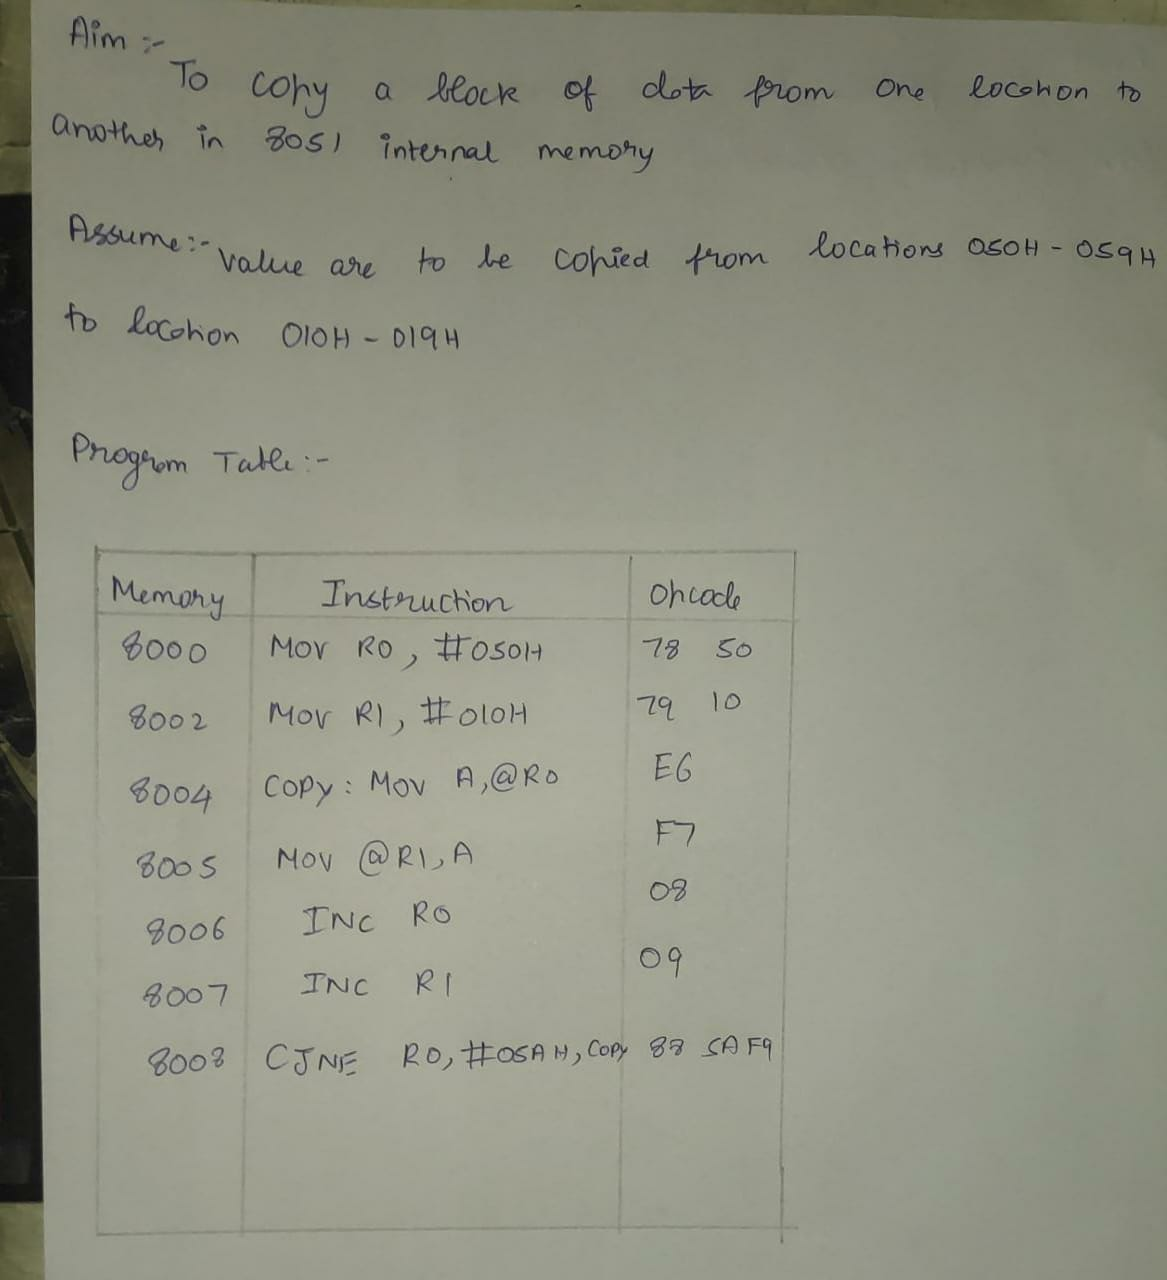 Aim :-
To copy a block of data from one location to
another in 8051 internal memory
Assume:- value are to be copied from locations 050H - 059H
to location 010H - 019H
Program Table :-
Memory Instruction Opcode
8000 MOV R0, #050H 78 50
8002 MOV R1, #010H 79 10
8004 COPY: MOV A,@R0 E6
8005 MOV @R1,A F7
8006 INC R0 08
8007 INC R1 09
8008 CJNE R0, #05AH, COPY 88 5A F9